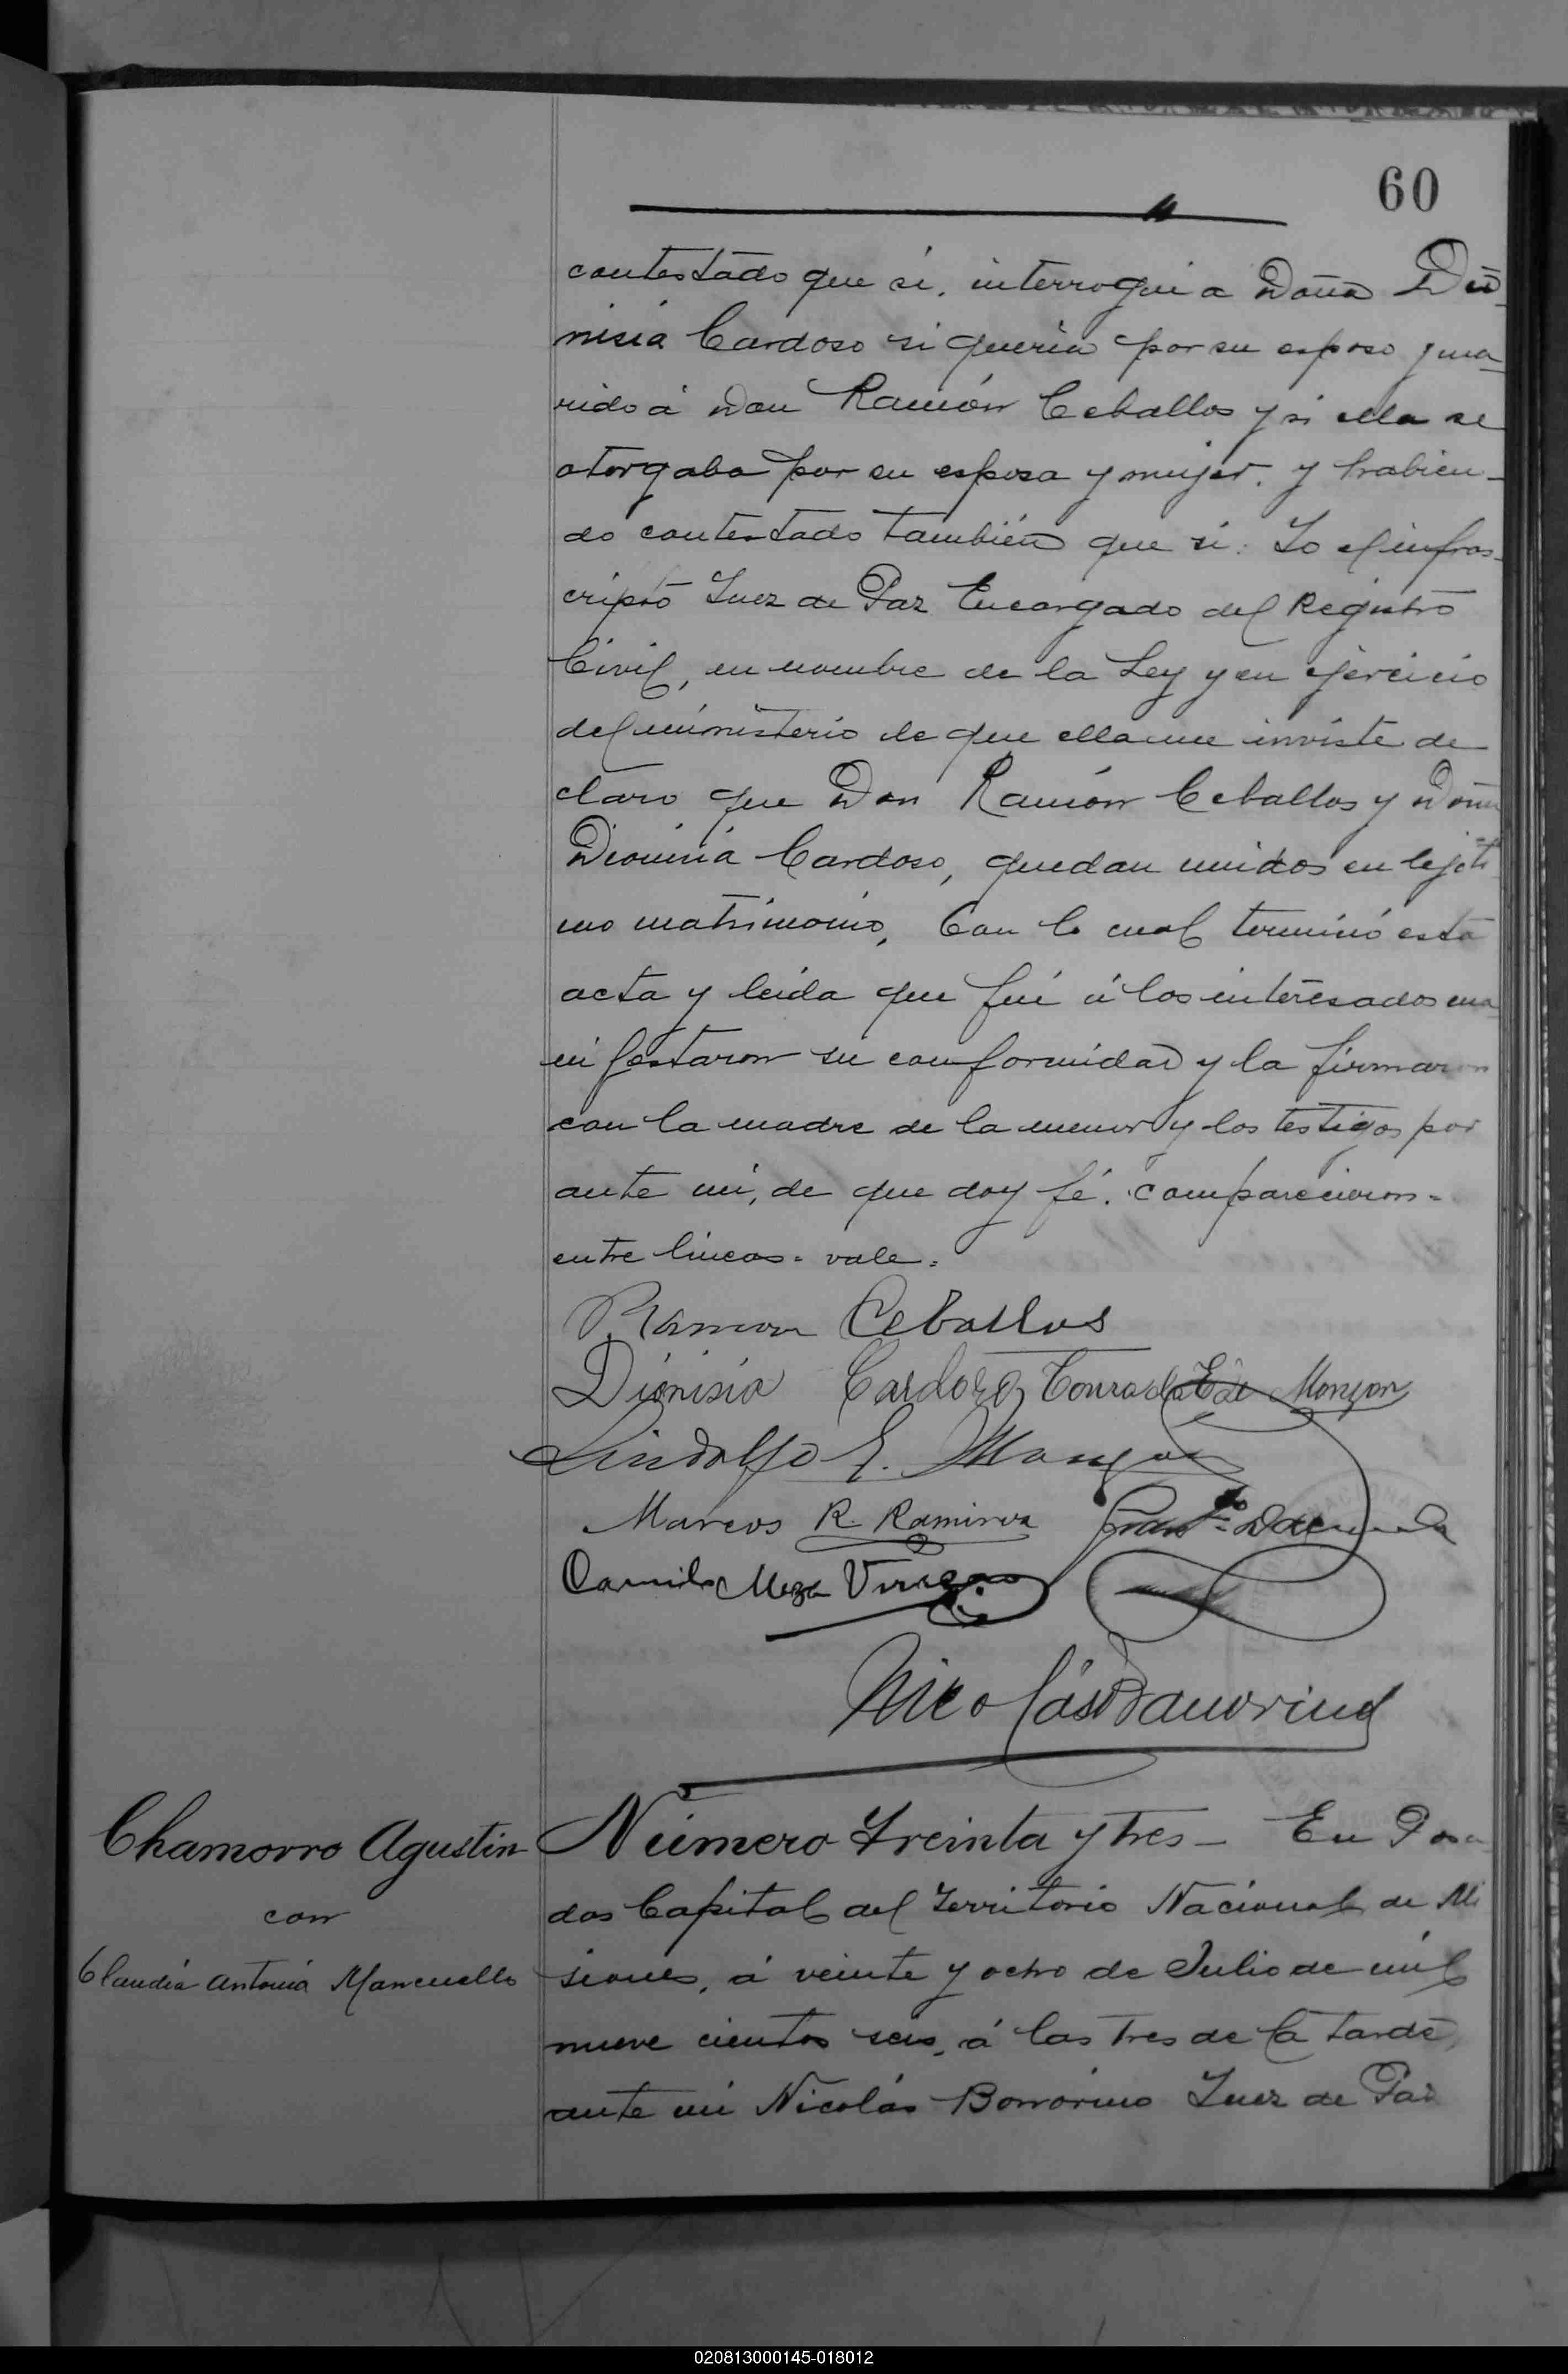 60
contestado que sí, interrogué a Doña Dio-
nisia Cardoso si queria por su esposo y ma-
rido á Don Ramón Ceballos y si ella se
otorgaba por su esposa y mujer. y habien-
do contestado también que sí: Yo el infras-
cripto Juez de Paz Encargado del Registro
Civil, en nombre de la Ley y en ejercicio
del ministerio de que ella me inviste de
claro que Don Ramón Ceballos y Doña
Dionisia Cardoso, quedan unidos en lejiti
mo matrimonio, Con lo cual terminó esta
acta y leida que fué á los interesados ma
nifestaron su conformidad y la firmaron
con la madre de la menor y los testigos por
ante mi, de que doy fé. comparecieron =
entre lineas = vale =
Ramon Ceballos
Dionisia Cardozo Conrada E. de Monzon
Lindolfo E. Monzon
Marcos R. Ramirez
Camilo Meza
Nicolás
Chamorro Agustin
con
Claudia Antonia Mancuello
Número Treinta y tres - En Posa
das Capital del Territorio Nacional de Mi
siones, á veinte y ocho de Julio de mil
nueve cientos seis, á las tres de la tarde,
ante mi Nicolás Borrorino Juez de Paz
020813000145-018012